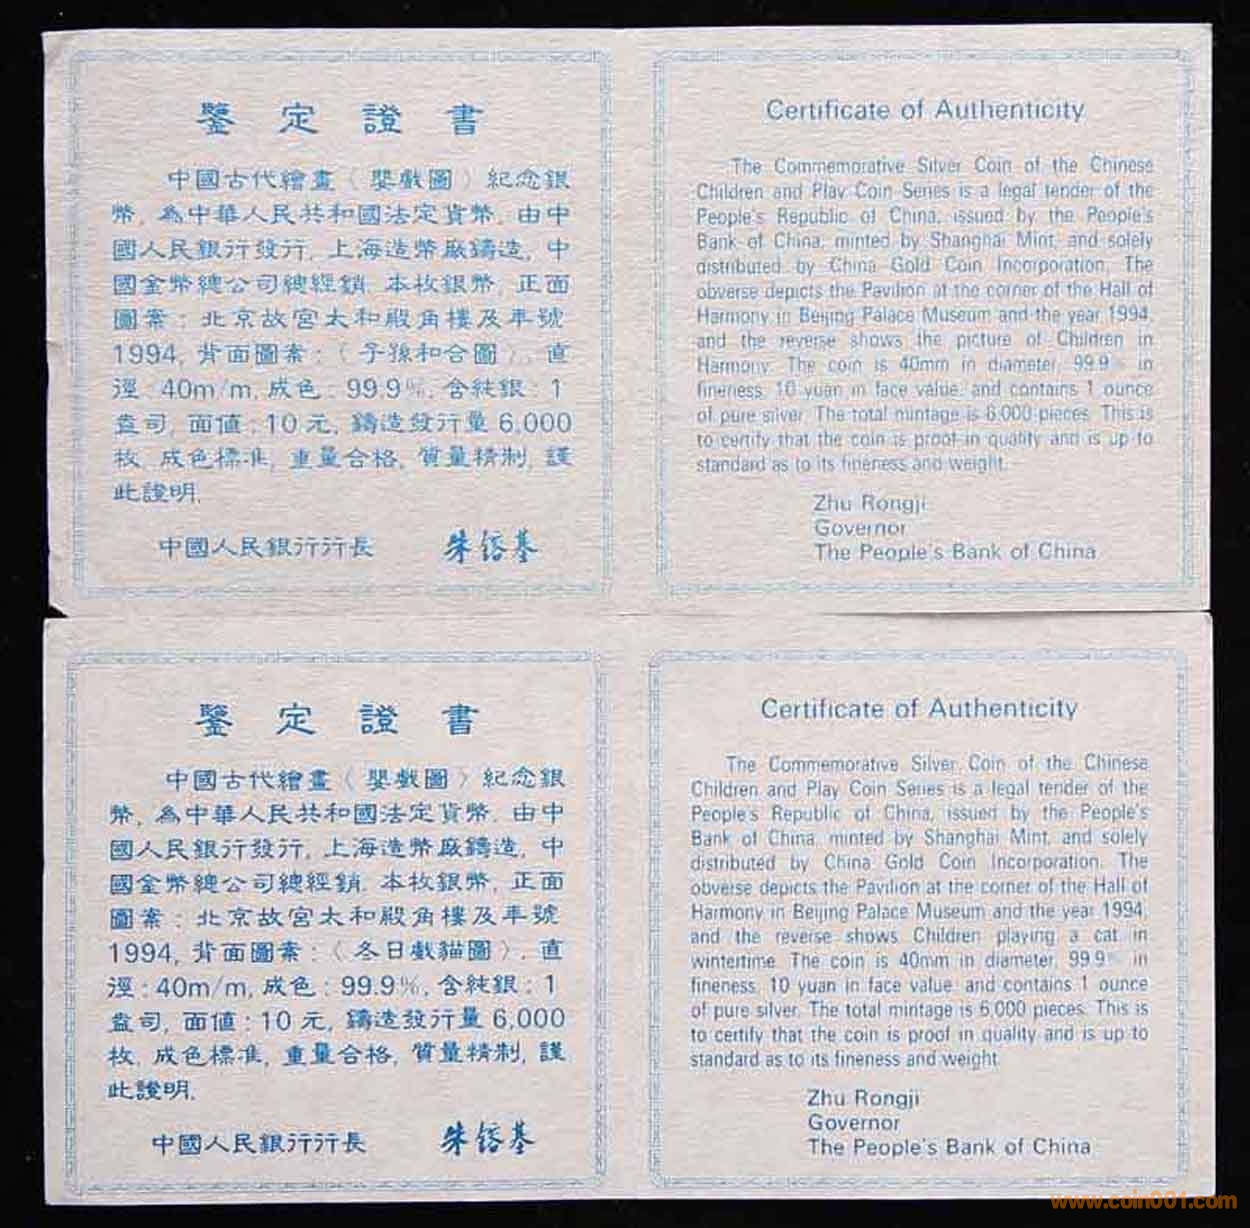 鑒定證書
中國古代繪畫〈嬰戲圖〉紀念銀
幣，為中華人民共和國法定貨幣，由中
國人民銀行發行，上海造幣廠鑄造，中
國金幣總公司總經銷，本枚銀幣，正面
圖案：北京故宮太和殿角樓及年號
1994，背面圖案：〈子孫和合圖〉，直
徑：40m/m，成色：99.9%，含純銀：1
盎司，面值：10元，鑄造發行量6,000
枚，成色標准，重量合格，質量精制，謹
此證明。
中國人民銀行行長 朱镕基
Certificate of Authenticity
The Commemorative Silver Coin of the Chinese
Children and Play Coin Series is a legal tender of the
People's Republic of China, issued by the People's
Bank of China, minted by Shanghai Mint, and solely
distributed by China Gold Coin Incorporation. The
obverse depicts the Pavilion at the corner of the Hall of
Harmony in Beijing Palace Museum and the year 1994,
and the reverse shows the picture of Children in
Harmony. The coin is 40mm in diameter, 99.9% in
fineness, 10 yuan in face value, and contains 1 ounce
of pure silver. The total mintage is 6,000 pieces. This is
to certify that the coin is proof in quality and is up to
standard as to its fineness and weight.
Zhu Rongji
Governor
The People's Bank of China
鑒定證書
中國古代繪畫〈嬰戲圖〉紀念銀
幣，為中華人民共和國法定貨幣，由中
國人民銀行發行，上海造幣廠鑄造，中
國金幣總公司總經銷，本枚銀幣，正面
圖案：北京故宮太和殿角樓及年號
1994，背面圖案：〈冬日戲貓圖〉，直
徑：40m/m，成色：99.9%，含純銀：1
盎司，面值：10元，鑄造發行量6,000
枚，成色標准，重量合格，質量精制，謹
此證明。
中國人民銀行行長 朱镕基
Certificate of Authenticity
The Commemorative Silver Coin of the Chinese
Children and Play Coin Series is a legal tender of the
People's Republic of China, issued by the People's
Bank of China, minted by Shanghai Mint, and solely
distributed by China Gold Coin Incorporation. The
obverse depicts the Pavilion at the corner of the Hall of
Harmony in Beijing Palace Museum and the year 1994,
and the reverse shows Children playing a cat in
wintertime. The coin is 40mm in diameter, 99.9% in
fineness, 10 yuan in face value, and contains 1 ounce
of pure silver. The total mintage is 6,000 pieces. This is
to certify that the coin is proof in quality and is up to
standard as to its fineness and weight.
Zhu Rongji
Governor
The People's Bank of China
www.coin001.com